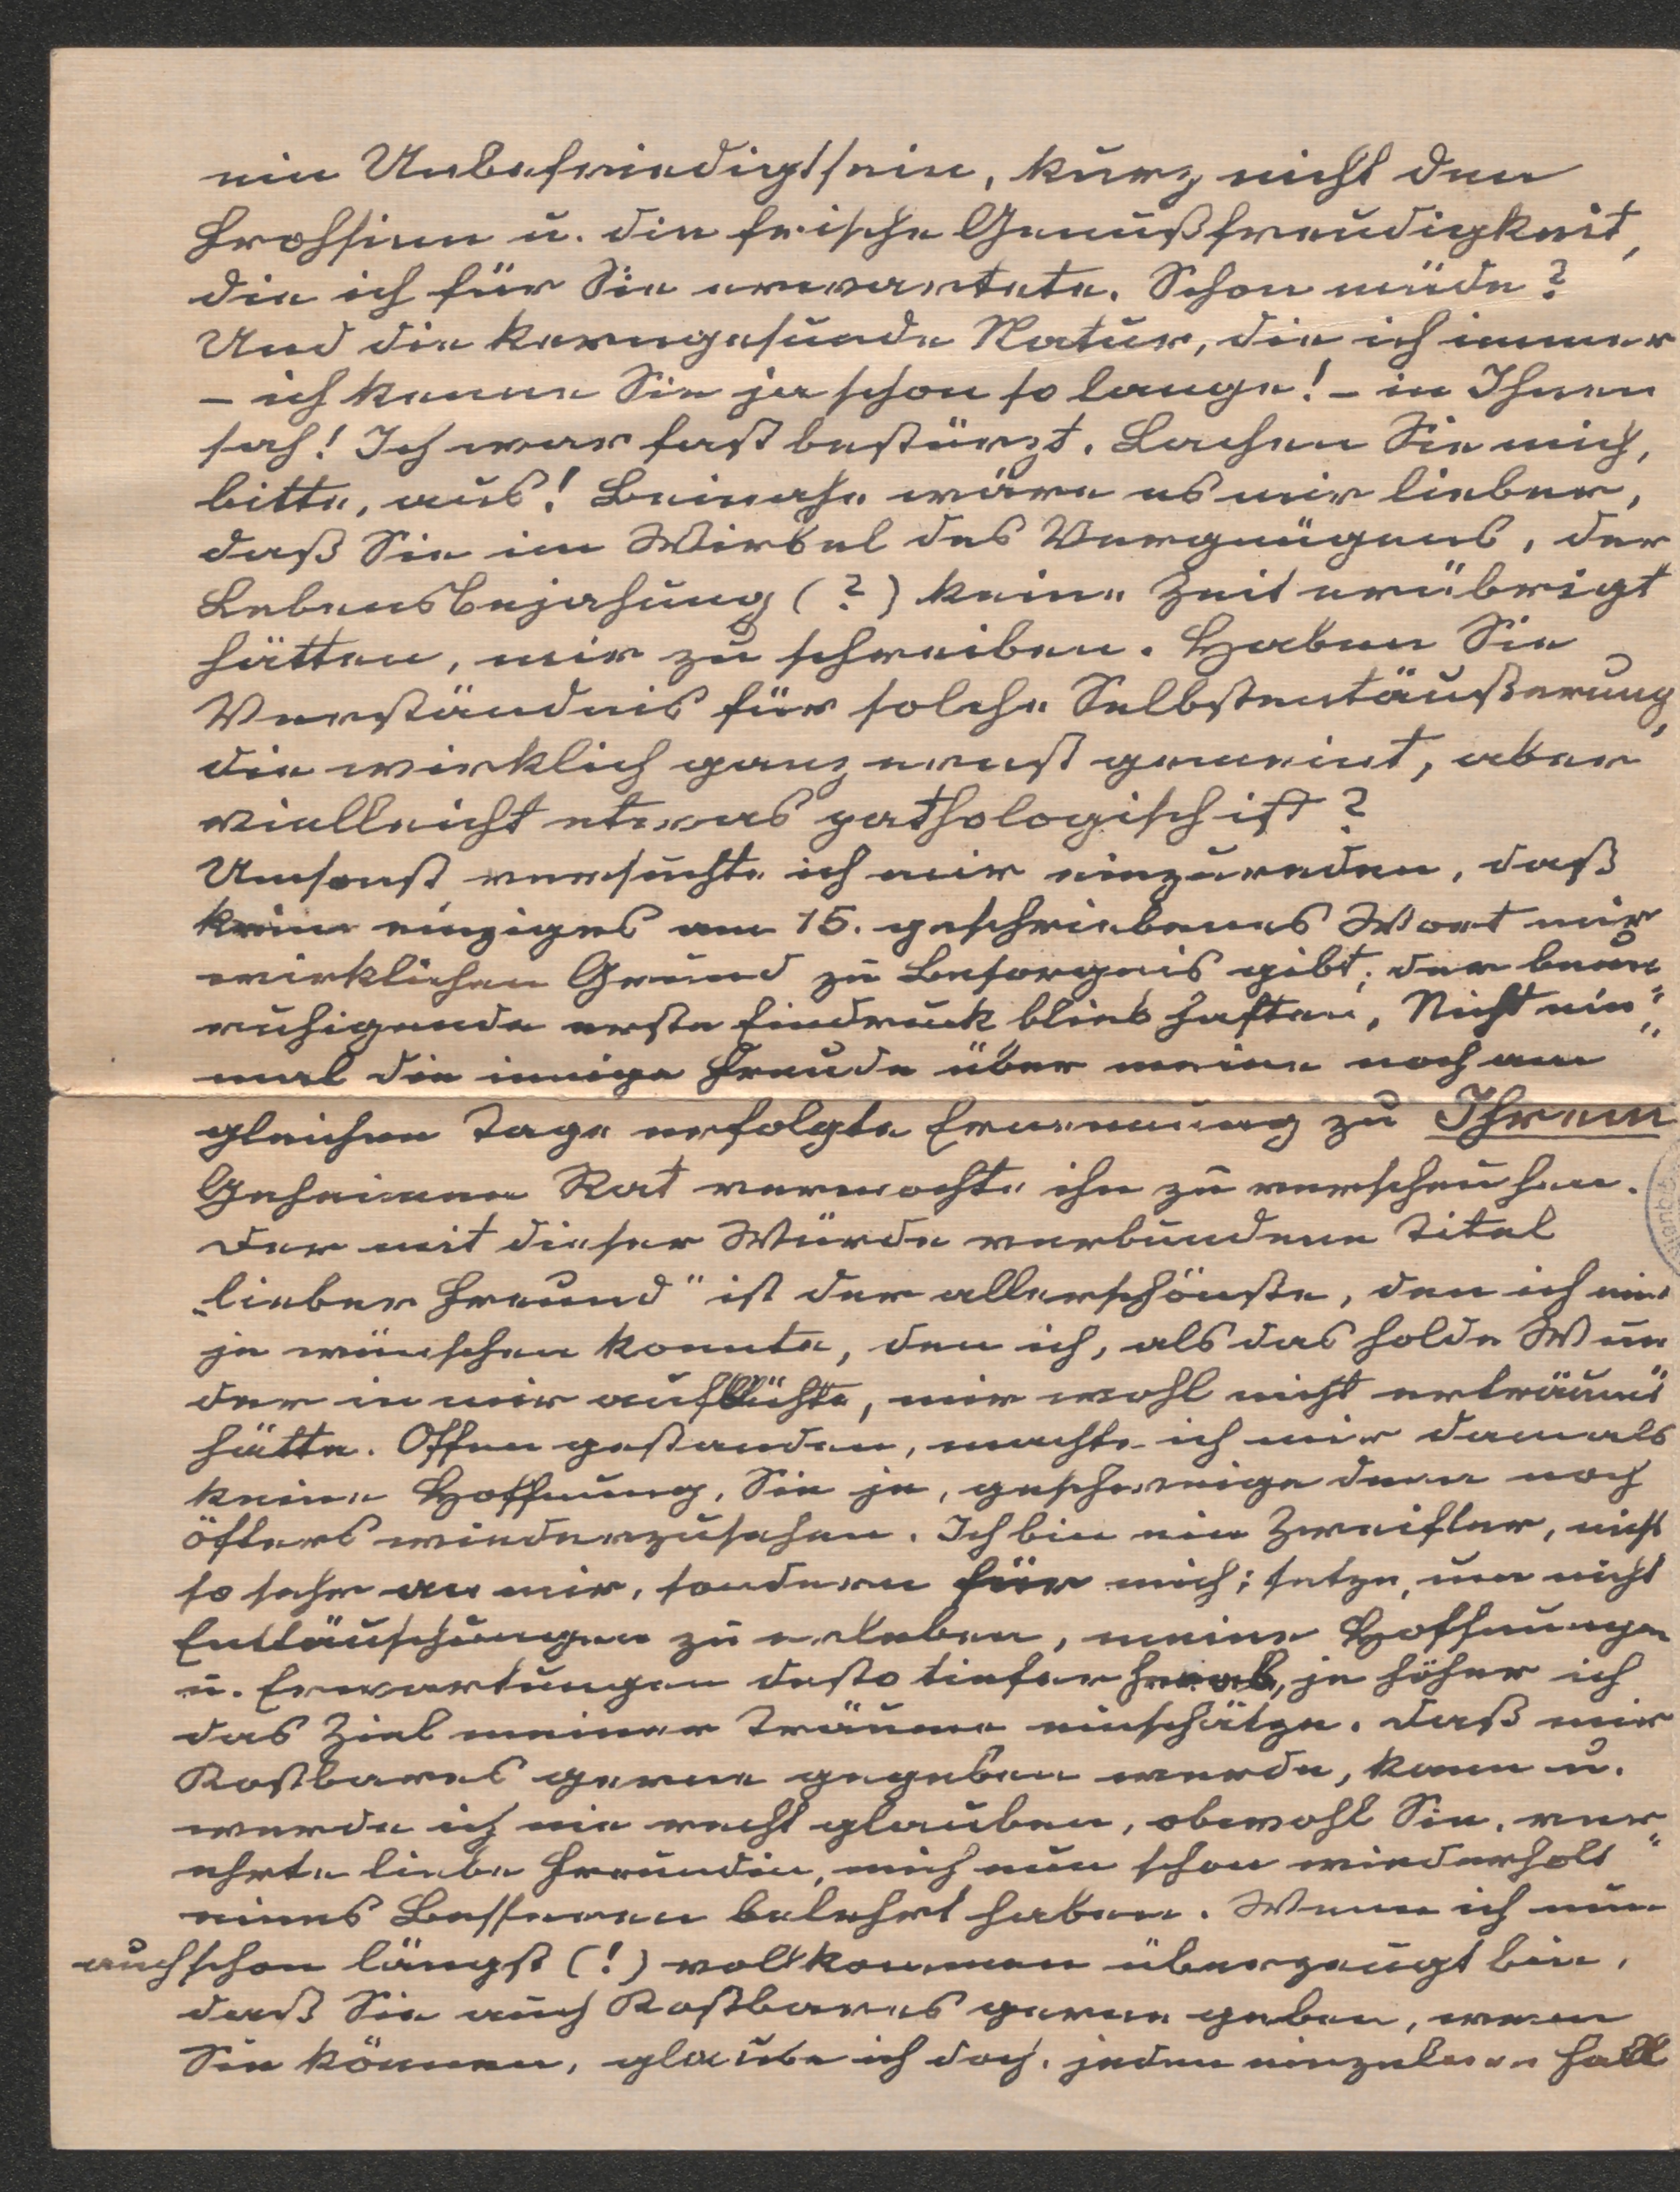 ein Unbefriedigtsein, kurz nicht den
Frohsinn u. die frische Genußfreudigkeit,
die ich für Sie erwartete. Schon müde?
Und die kerngesunde Natur, die ich immer
– ich kenne Sie ja schon so lange! – in Ihnen
sah! Ich war fast bestürzt. Lachen Sie mich,
bitte, aus! Beinahe wäre es mir lieber,
daß Sie im Wirbel des Vergnügens, der
Lebensbejahung (?) keine Zeit erübrigt
hätten, mir zu schreiben. Haben Sie
Verständnis für solche Selbstentäußerung,
die wirklich ganz ernst gemeint, aber
vielleicht etwas pathologisch ist?
Umsonst versuchte ich mir einzureden, daß
kein einziges am 15. geschriebenes Wort mir
wirklichen Grund zu Besorgnis gibt; der beun
ruhigende erste Eindruck blieb haften. Nicht ein=
mal die innige Freude über meine noch am
gleichen Tage erfolgte Ernennung zu Ihrem
Geheimen Rat vermochte ihn zu verscheuchen.
Der mit dieser Würde verbundene Titel
„lieber Freund" ist der allerschönste, den ich mir
je wünschen konnte, den ich, als das holde Wun
der in mir aufblühte, mir wohl nicht erträumt
hätte. Offen gestanden, machte ich mir damals
keine Hoffnung, Sie je, geschweige denn noch
öfters wiederzusehen. Ich bin ein Zweifler, nicht
so sehr an mir, sondern für mich; setze, um nicht
Enttäuschungen zu erleben, meine Hoffnungen
u. Erwartungen desto tiefer herab, je höher ich
das Ziel meiner Träume einschätze. Daß mir
Kostbares gerne gegeben werde, kann u.
werde ich nie recht glauben, obwohl Sie, ver=
ehrte liebe Freundin, mich nun schon wiederholt
eines Besseren belehrt haben. Wenn ich nun
auch schon längst (!) vollkommen überzeugt bin,
daß Sie auch Kostbares gerne geben, wenn
Sie können, glaube ich doch, jeden einzelnen Fall